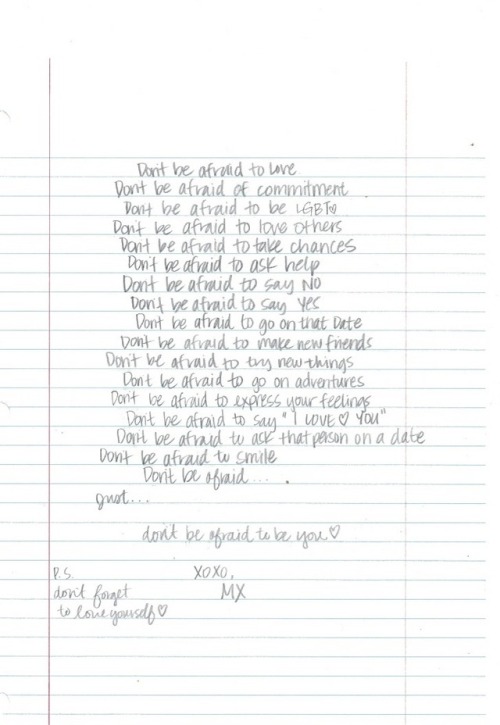 Don't be afraid to love
Don't be afraid of commitment
Don't be afraid to be LGBT♡
Don't be afraid to love others
Don't be afraid to take chances
Don't be afraid to ask help
Don't be afraid to say NO
Don't be afraid to say Yes
Don't be afraid to go on that Date
Don't be afraid to make new friends
Don't be afraid to try new things
Don't be afraid to go on adventures
Don't be afraid to express your feelings
Don't be afraid to say "I LOVE ♡ YOU"
Don't be afraid to ask that person on a date
Don't be afraid to smile
Don't be afraid... .
Just...
don't be afraid to be you♡
XOXO,
MX
P.S.
don't forget
to love yourself♡